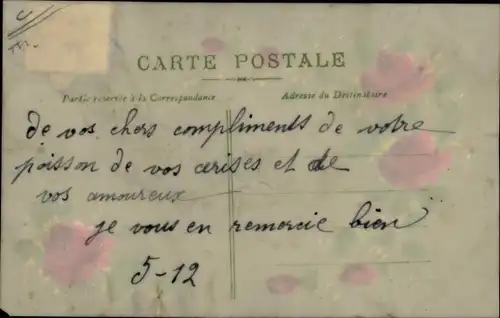 CARTE POSTALE
Partie réservée à la Correspondance
Adresse du Destinataire
de vos chers compliments de votre
poisson de vos cerises et de
vos amoureux
je vous en remercie bien
5-12